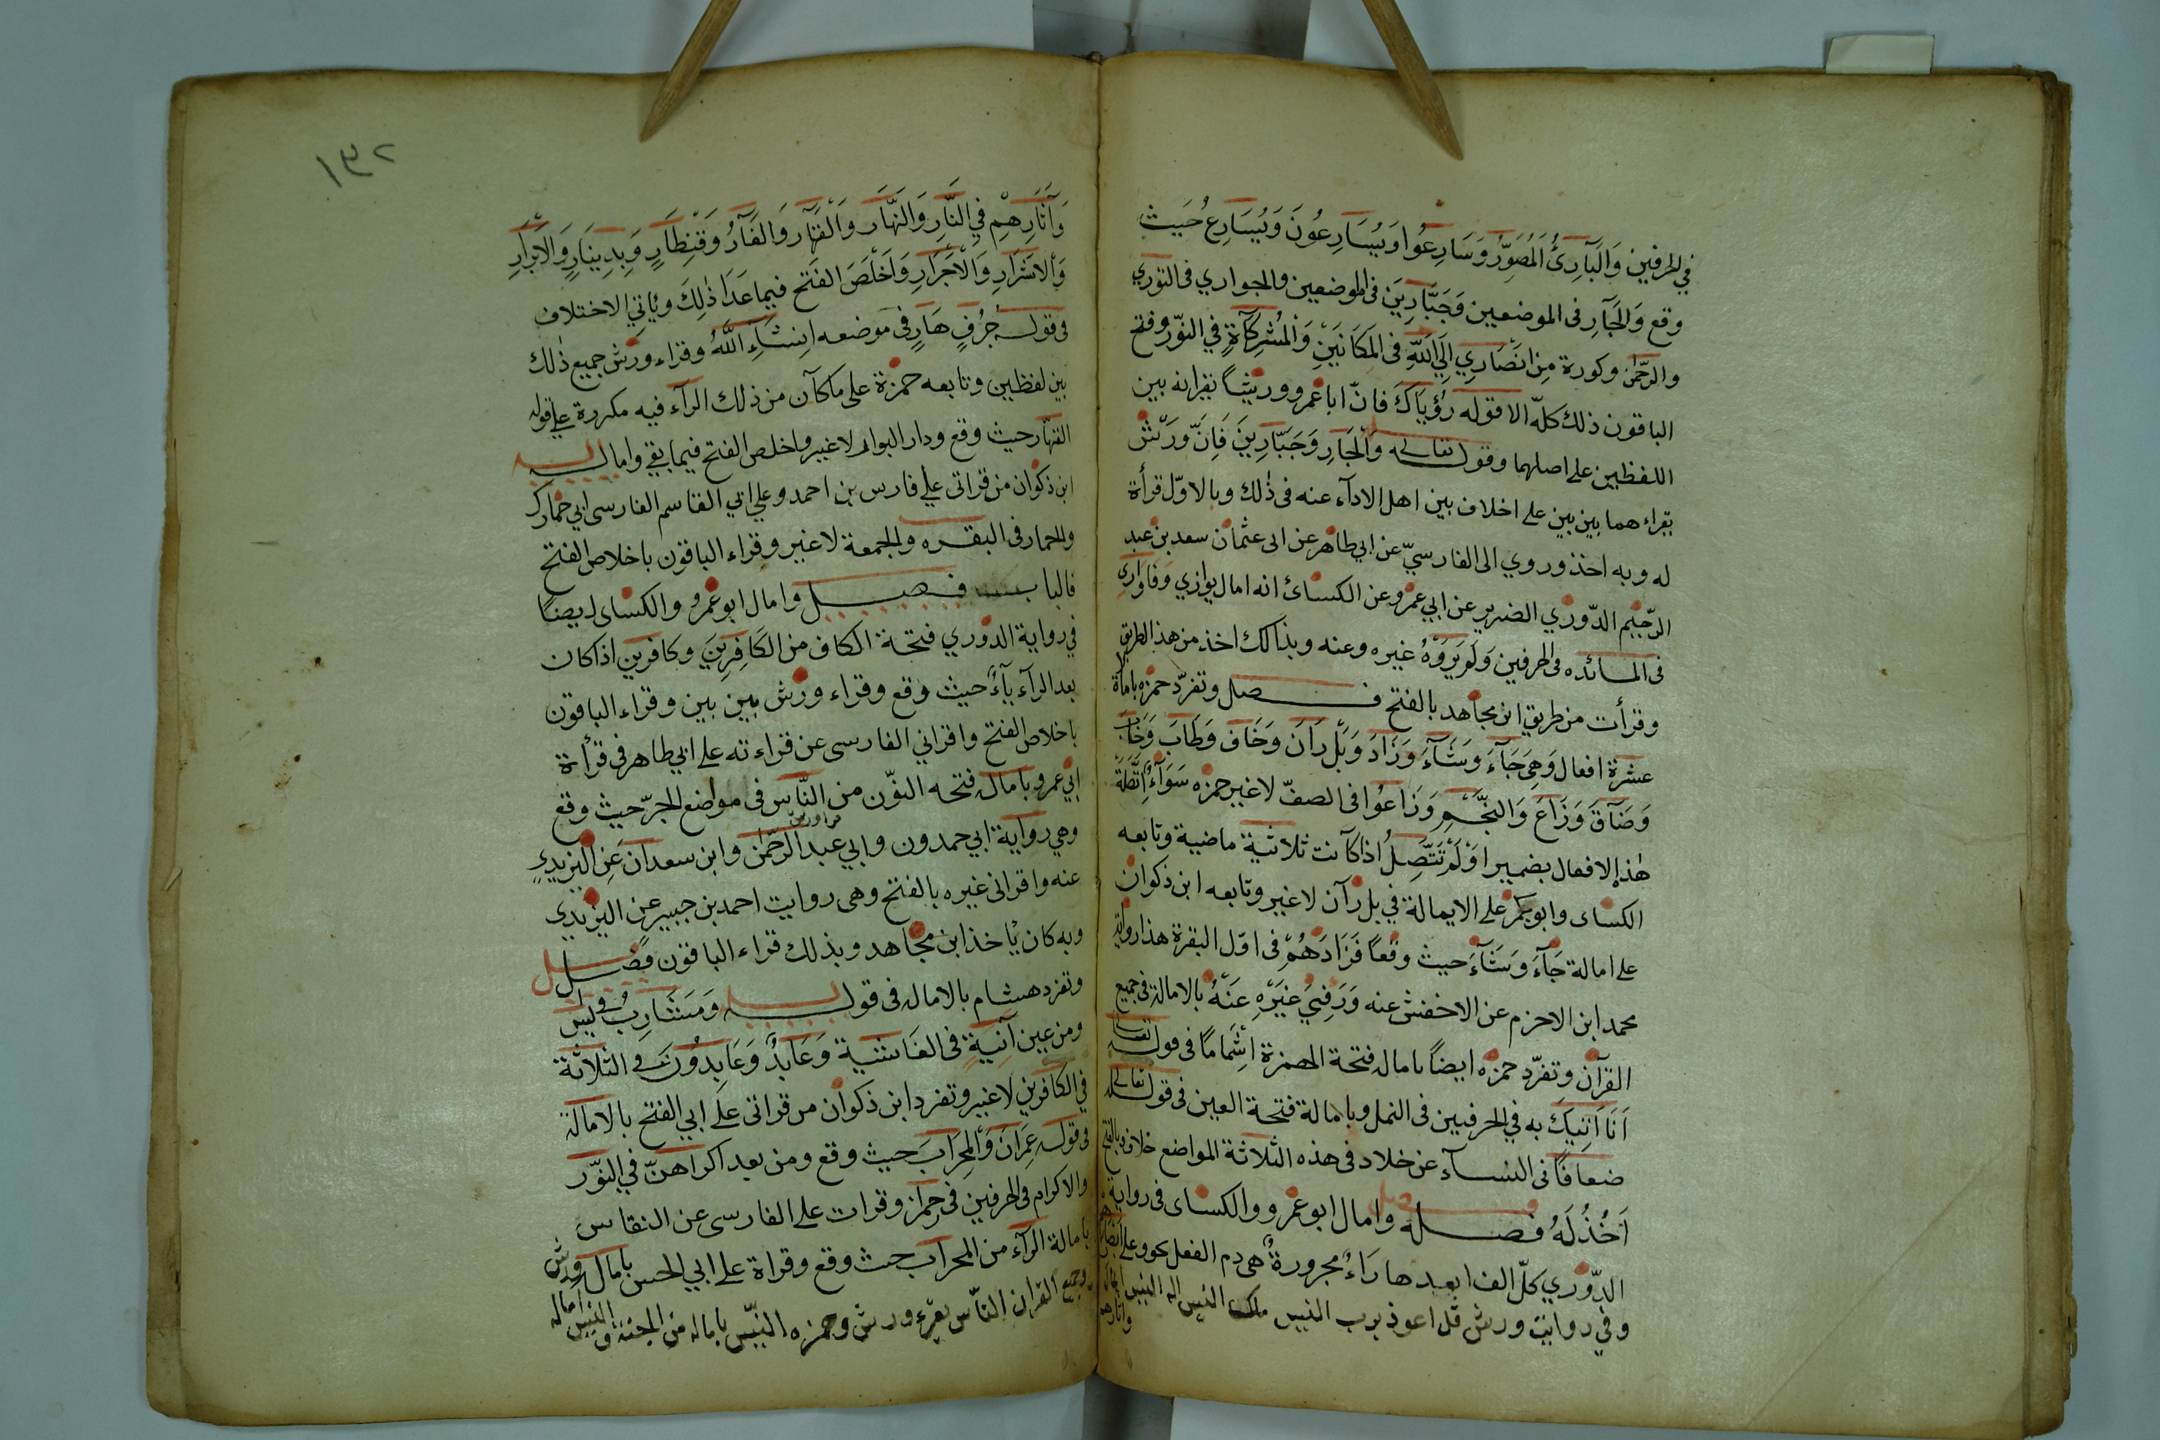 في الحرفين وَالْبَارِئُ الْمُصَوِّرُ وَسَارِعُوا وَيُسَارِعُونَ وَيُسَارِع حَيث
وقع وَالْجَارِ فى الموضعين وَجَبَّارِينَ فى الموضعين والجواري فى التوري
والرحمن وكورة مِنْ انْصَارِي اِلَى اللهِ فى المَكَانَيْنِ وَالْمُشْرِكَاةِ فِي النّور وفتح
الباقون ذلك كلّه الا قوله رُؤْيَاكَ فانّ ابا عمرو وورشًا يقرانه بين
اللفظين على اصلهما وقوله تعالى وَالْجَارِ وَجَبَّارِينَ فَإِنَّ وَرْش
يقراء هما بين بين على اخلاف بين اهل الادآء عنه فى ذٰلك وبالاوّل قرأة
له وبه اخذ وروي الى الفارسيّ عن ابي طاهر عن ابى عثمان سعد بن عبد
الرّحيم الدّوري الضرير عن ابي عمرو عن الكسائ انه امال يواري وفاواري
فى المائده فى الحرفين وَلَم يَرْوِهُ غيره وعنه وبذالك اخذ من هذا الطريق
وقرأت من طريق ابن مجاهد بالفتح فصل وتفرّد حمزه بامالة
عشرة افعال وَهِيَ جَآءَ وَشَآءَ وَزَادَ وَبَلْ رَانَ وَخَافَ وَطَابَ وَخَابَ
وَضَاقَ وَزَاغَ وَالنَّجْمِ وَزَاغُوا فى الصفّ لا غير حمزه سَوَآءٌ اِتَّصَلَتْ
هٰذه الافعال بضمير اوْ لَمْ تَتَّصِلْ اذا كانت ثلاثيّة ماضية وتابعه
الكساى وابو بكر على الايمالة في بل رآن لا غير وتابعه ابن ذكوان
على امالة جَآءَ وَشَآءَ حيث وقعًا فَزَادَهُمْ فى اوّل البقرة هذا رواية
محمد ابن الاحزم عن الاخفش عنه وَرَوِيَ غَيْرُهِ عَنْهُ بالامالة فى جميع
القرآن وتفرّد حمزه ايضًا بامالة فتحة الهمزة اِشْمَامًا فى قوله تعالى
اَنَا اَتِيكَ به في الحرفيين فى النمل وبامالة فتحة العين فى قوله تعالى
ضعافًا فى النسآء عن خلاد فى هذه الثلاثة المواضع خلاف بالفتح
اَخُذُ لَهُ فصل وامال ابو عمرو والكساى فى رواية
الدّوري كلّ الف ابعدها رَاءٌ مجرورةٌ هى دم الفعل نحو وعلى ابصارهم
وفي روايت ورش قل اعوذ برب النيس ملك النيس اله النيس
وآثارهم

١٣٢
وَآثَارِهِمْ فِي النَّارِ وَالنَّهَارِ وَالْقَهَّارِ وَالْفَارُ وَقِنْطَارٍ وَبِدِينَارٍ وَالْاَبْرَارِ
وَالْاَشْرَارِ وَالْاَحْرَارِ وَاَخْلَصَ الفتح فيما عَدَا ذٰلِكَ وياتي الاختلاف
فى قوله جُرُفٍ هَارٍ فى موضعه اِنشَاءَ اللّهُ وقراء ورش جميع ذٰلك
بين لفظين وتابعه حمزة على ما كآن من ذلك الرآء فيه مكررة على قوله
القهّار حيث وقع ودار البوار لا غير واخلص الفتح فيما بقي واماله
ابن ذكوان من قراتى على فارس بن احمد وعلى ابي القاسم الفارسى ابي حمارك
والحمار فى البقره والجمعة لا غير وقراء الباقون باخلاص الفتح
فالباب فصل وامال ابو عمرو والكساى ايضًا
في رواية الدوري فتحة الكاف من الكَافِرِينَ وكافرين اذا كان
بعد الرآء يآءٌ حيث وقع وقراء ورش بين بين وقراء الباقون
باخلاص الفتح واقراني الفارسى عن قراءته على ابي طاهر فى قرأة
ابي عمرو بامالة فتحه النوّن من النّاس فى مواضع الجرّ حيث وقع
وهي رواية ابي حمدون وابي عبد الرحمٰن وابن سعدان عن اليزيدي
عنه واقرانى غيره بالفتح وهى روايت احمد بن جبير عن اليزيدى
وبه كان يْاخذ ابن مجاهد وبذلك قراء الباقون فصل
وتفرد هشام بالاماله فى قوله وَمَشَارِبُ فى يس
ومن عين آنِيَةٍ فى الغاشية وَعَابِدٌ وَعَابِدُونَ فى الثلاثة
في الكافرين لا غير وتفرد ابن ذكوان من قراتى على ابي الفتح بالامالة
فى قوله عِمَرَانَ وَالْمِحْرَابَ حيث وقع ومن بعد اكراهنّ في النوّر
والاكرام فى الحرفين فى حرمز وقرات على الفارسى عن النقاس
بامالة الرآء من المحراب حيث وقع وقراة على ابي الحسن بامال ورش
وجميع القران النّاس يقرء ورش وحمزه النيّس باماله من الجنة والنيس اماله